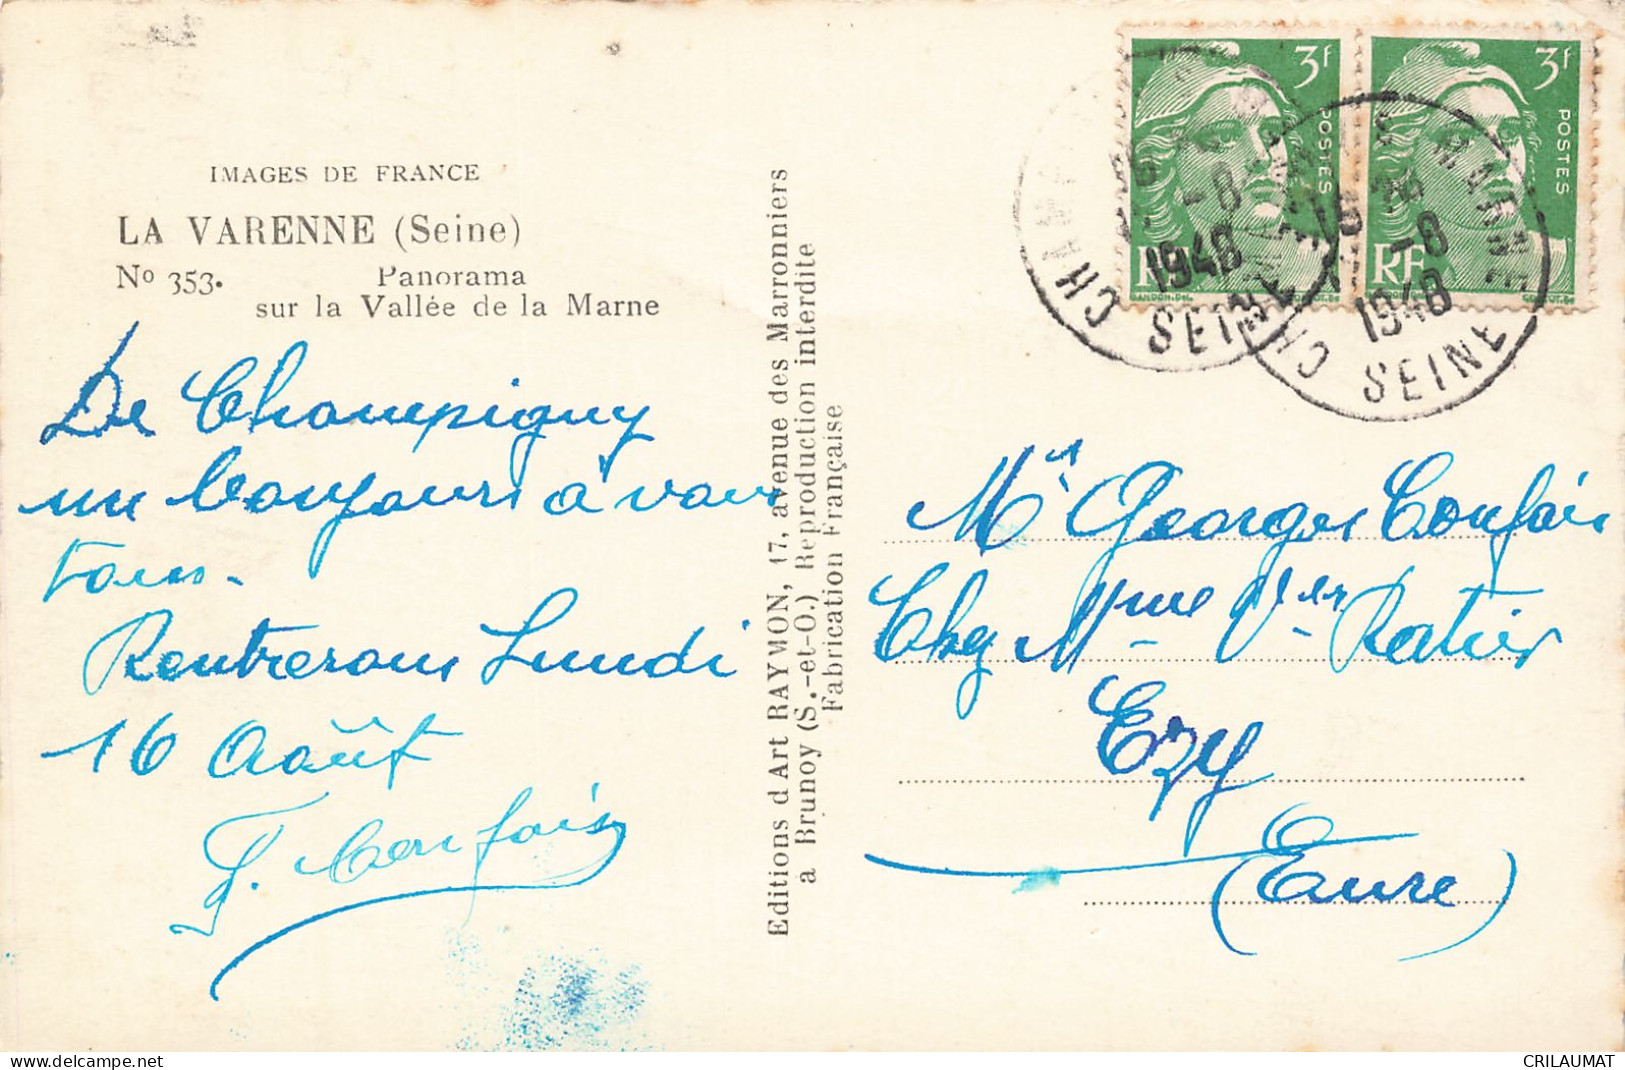 IMAGES DE FRANCE
LA VARENNE (Seine)
No 353. Panorama
sur la Vallée de la Marne
De Champigny
un bonjour à vous
tous.
Rentrerons Lundi
16 Août
Editions d'Art RAYMON, 17, avenue des Marronniers
a Brunoy (S.-et-O.) Reproduction interdite
Fabrication Française
3f
POSTES
RF
3f
POSTES
RF
GANDON.Del.
1948
SEINE
-8
1948
SEINE
Mr Georges Confais
Chez Mme Vve Ratier
Ezy
(Eure)
delcampe.net
CRILAUMAT